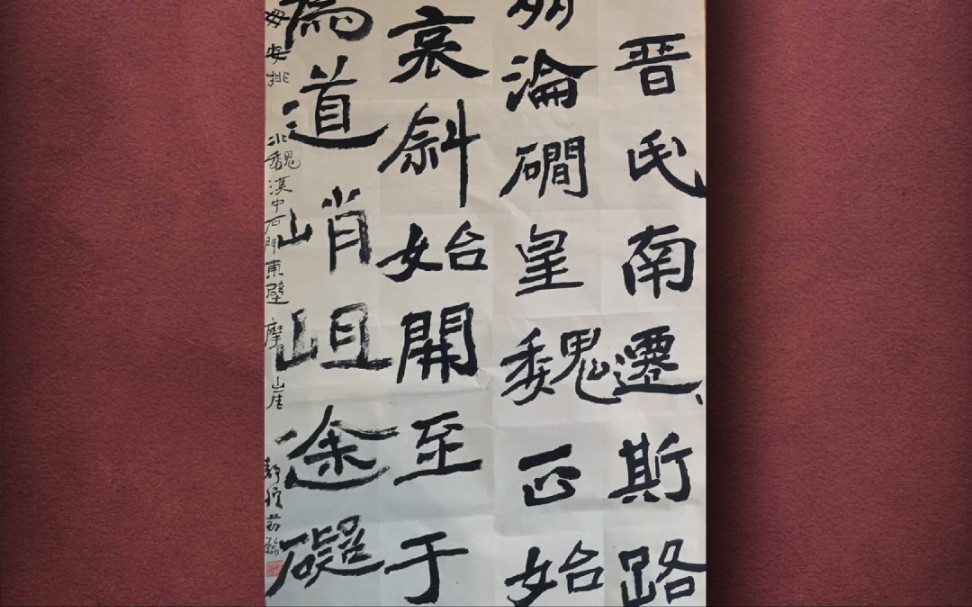 晋民南遷斯路
淪磵皇魏正始
哀斜始開至于
為道峭岨途礙
安排 北魏漢中石門東壁摩崖